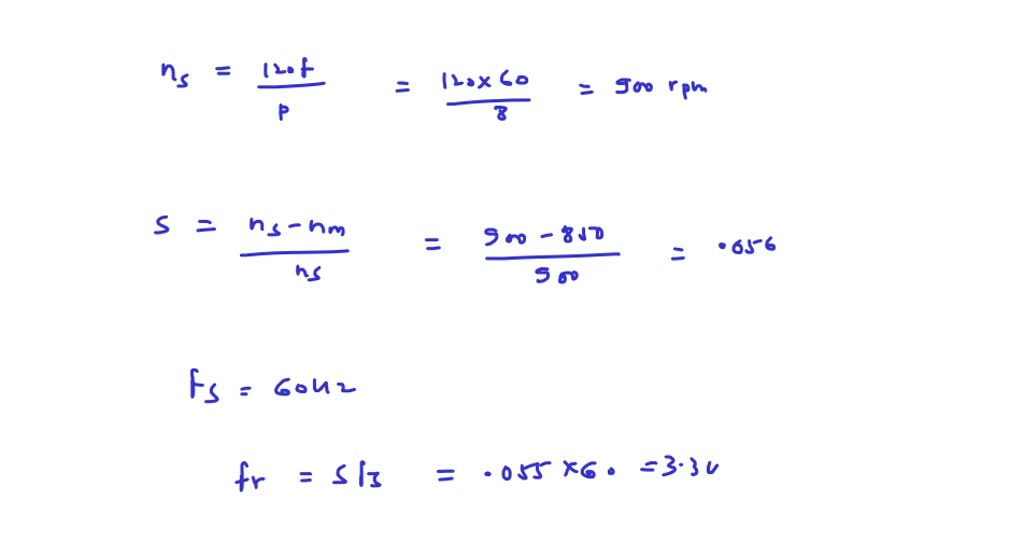 n_s = 120f / P = 120×60 / 8 = 900 rpm
s = n_s - n_m / n_s = 900 - 850 / 900 = .056
f_s = 60Hz
fr = s = .055 × 60 = 3.3